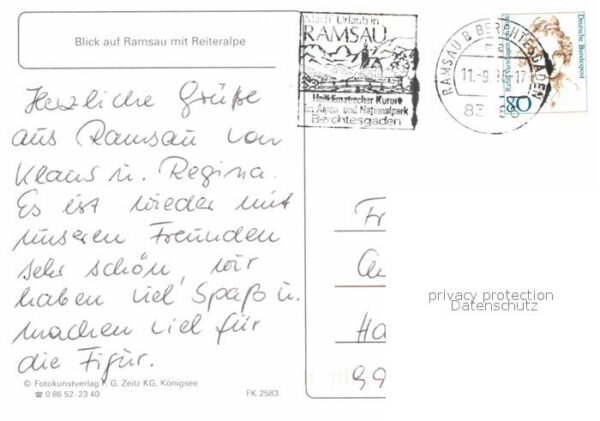 Blick auf Ramsau mit Reiteralpe
Herzliche Grüße
aus Ramsau von
Klaus u. Regina.
Es ist wieder mit
unseren Freunden
sehr schön, wir
haben viel Spaß u.
machen viel für
die Figur.
© Fotokunstverlag F. G. Zeitz KG, Königsee
☎ 0 86 52-23 40
FK 2583
Nach Urlaub in
RAMSAU
Heilklimatischer Kurort
im Alpen- und Nationalpark
Berchtesgaden
RAMSAU B BERCHTESGADEN
11.-9.
17
Deutsche Bundespost
80
Fr
Ha
privacy protection
Datenschutz